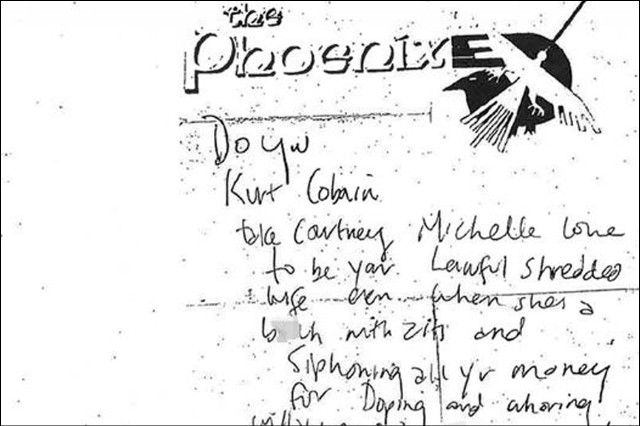 the
Phoenix
Do you
Kurt Cobain
take Cortney Michelle Love
to be your Lawful shredded
wife even when shes a
b ch with zits and
siphoning all yr money
for Doping and whoring